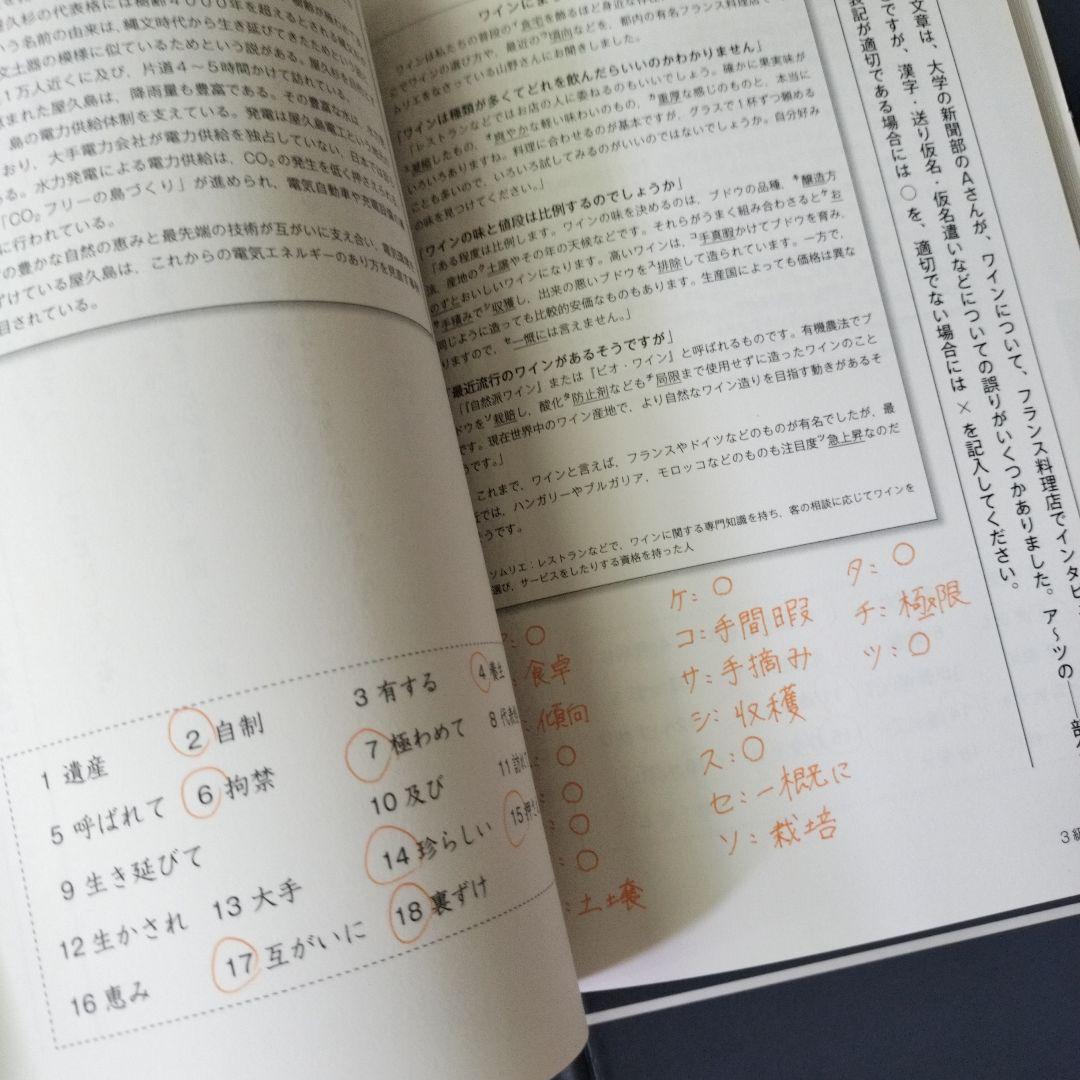 久杉の代表格には樹齢4000年を超えるとされる縄
いう名前の由来は、縄文時代から生き延びてきたためという
文土器の模様に似ているためという説がある。屋久杉を
1万人近くに及び、片道4~5時間かけて訪れている。
まれた屋久島は、降雨量も豊富である。その豊富な水は、
島の電力供給体制を支えている。発電は屋久島電工という
おり、大手電力会社が電力供給を独占していない、日本では
る。水力発電による電力供給は、CO₂の発生を低く押さえられ
「CO₂フリーの島づくり」が進められ、電気自動車や充電設備
に行われている。
の豊かな自然の恵みと最先端の技術が互がいに支え合い、
ずけている屋久島は、これからの電気エネルギーのあり方を
目されている。
1 遺産
2 自制
3 有する
4 養生
5 呼ばれて
6 拘禁
7 極わめて
8 代表
9 生き延びて
10 及び
11
12 生かされ
13 大手
14 珍らしい
15 押さ
16 恵み
17 互がいに
18 裏ずけ
ワインにま
ワインは私たちの普段のイ食宅を飾るほど身近な
でワインの選び方や、最近のウ頃向などを、都内の有名フランス料理店で
ムリエをなさっている山野さんにお聞きしました。
「ワインは種類が多くてどれを飲んだらいいのかわかりません」
「レストランなどではお店の人に委ねるのもいいでしょう。確かに果実味が
凝縮したもの、爽やかな軽い味わいのもの、重厚な感じのものと、本当に
いろいろありますね。料理に合わせるのが基本ですが、グラスで1杯ずつ頼める
ことも多いので、いろいろ試してみるのがいいのではないでしょうか。自分好み
の味を見つけてください。」
「ワインの味と値段は比例するのでしょうか」
「ある程度は比例します。ワインの味を決めるのは、ブドウの品種、キ醸造方
法、産地のク土譲やその年の天候などです。それらがうまく組み合わさるとケお
のずとおいしいワインになります。高いワインは、コ手真暇かけてブドウを育み、
サ手積みでシ収獲し、出来の悪いブドウをス排除して造られています。一方で、
同じように造っても比較的安価なものもあります。生産国によっても価格は異な
りますので、セ一慨には言えません。」
「最近流行のワインがあるそうですが」
「『自然派ワイン』または『ビオ・ワイン』と呼ばれるものです。有機農法でブ
ドウをソ栽賠し、酸化タ防止剤などもチ局限まで使用せずに造ったワインのこと
です。現在世界中のワイン産地で、より自然なワイン造りを目指す動きがあるそ
うです。」
これまで、ワインと言えば、フランスやドイツなどのものが有名でしたが、最
近では、ハンガリーやブルガリア、モロッコなどのものも注目度ツ急上昇なのだ
そうです。
ソムリエ:レストランなどで、ワインに関する専門知識を持ち、客の相談に応じてワインを
選び、サービスをしたりする資格を持った人
文章は、大学の新聞部のAさんが、ワインについて、フランス料理店でインタビ
ですが、漢字・送り仮名・仮名遣いなどについての誤りがいくつかありました。ア~ツの――部
表記が適切である場合には○を、適切でない場合には×を記入してください。
○
食卓
傾向
○
○
○
○
土壌
ケ:○
コ:手間暇
サ:手摘み
シ:収穫
ス:○
セ:一概に
ソ:栽培
タ:○
チ:極限
ツ:○
3級